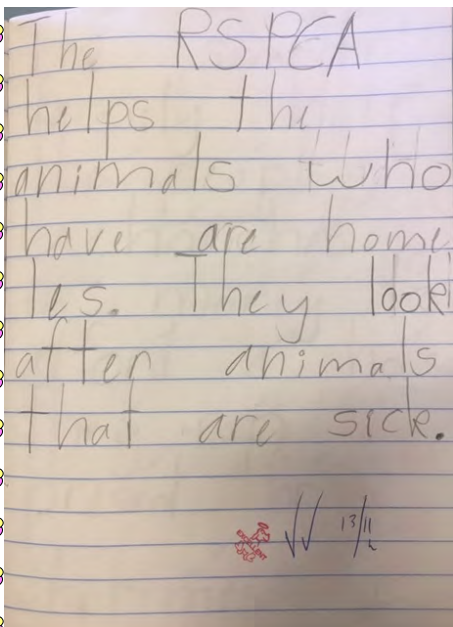 The RSPCA
helps the
animals who
have are home
les. They look
after animals
that are sick.
13/11